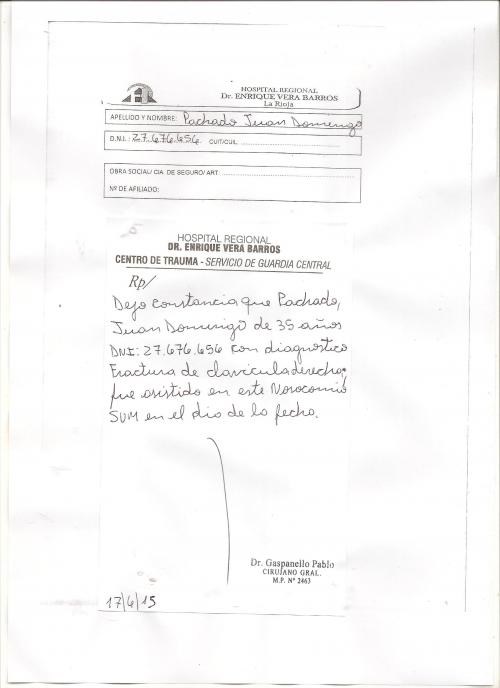 HOSPITAL REGIONAL
Dr. ENRIQUE VERA BARROS
La Rioja
APELLIDO Y NOMBRE: Pachado Juan Domingo
D.N.I.: 27.676.656. CUIT/CUIL:
OBRA SOCIAL/ CIA. DE SEGURO/ ART:
Nº DE AFILIADO:
HOSPITAL REGIONAL
DR. ENRIQUE VERA BARROS
CENTRO DE TRAUMA - SERVICIO DE GUARDIA CENTRAL
Rp/
Dejo constancia que Pachado,
Juan Domingo de 35 años
DNI: 27.676.656 con diagnostico
Fractura de clavicula derecha,
fue asistido en este Nosocomio
SUM en el dia de la fecha.
Dr. Gaspanello Pablo
CIRUJANO GRAL.
M.P. Nº 2463
17/6/15